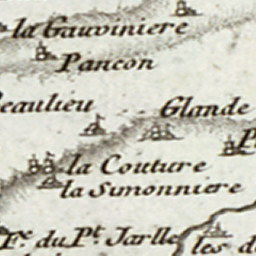 la Gauviniere
Pancon
Beaulieu
Glande
la Couture
la Simonniere
Fe. du Pt. Jarlle
les d